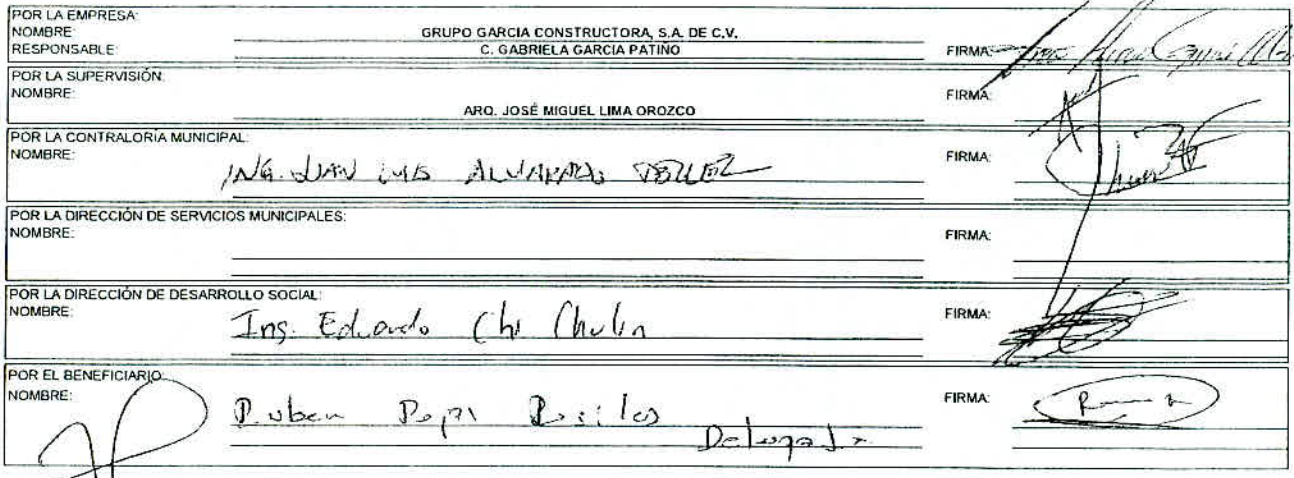 POR LA EMPRESA:
NOMBRE: GRUPO GARCIA CONSTRUCTORA, S.A. DE C.V.
RESPONSABLE: C. GABRIELA GARCIA PATIÑO FIRMA:
POR LA SUPERVISIÓN:
NOMBRE: FIRMA:
ARQ. JOSÉ MIGUEL LIMA OROZCO
POR LA CONTRALORÍA MUNICIPAL:
NOMBRE: FIRMA:
ING. JUAN LUIS ALVARADO
POR LA DIRECCIÓN DE SERVICIOS MUNICIPALES:
NOMBRE: FIRMA:
POR LA DIRECCIÓN DE DESARROLLO SOCIAL:
NOMBRE: FIRMA:
Ing. Eduardo Chi Chulin
POR EL BENEFICIARIO:
NOMBRE: FIRMA:
Ruben